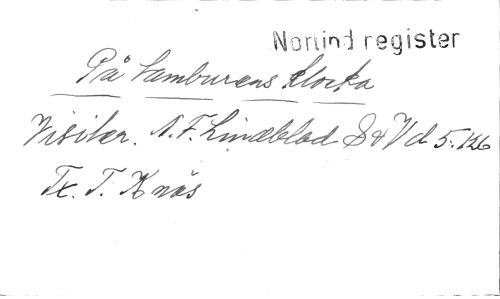 Norlind register
På Tamburens klocka
Visiter. A. F. Lindblad S & V d 5:126
Tx. T. Knös